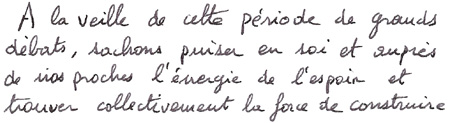 A la veille de cette période de grands
débats, sachons puiser en soi et auprès
de nos proches l'énergie de l'espoir et
trouver collectivement la force de construire